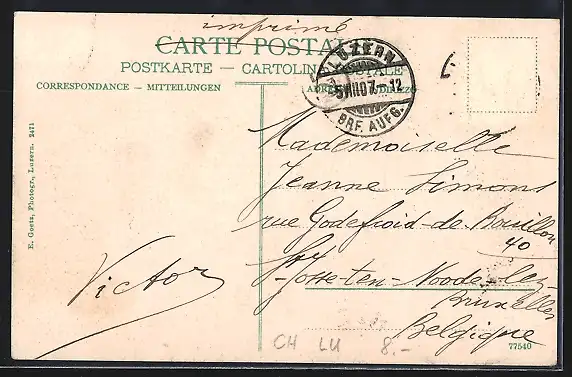 imprimé
CARTE POSTALE
POSTKARTE — CARTOLINA POSTALE
CORRESPONDANCE – MITTEILUNGEN
LUZERN
07.–12
BRF. AUFG.
Mademoiselle
Jeanne Simons
rue Godefroid-de Bouillon
40
St Josse-ten-Noode-lez-
Bruxelles
Belgique
Victor
E. Goetz, Photogr., Luzern. 2471
CH LU 8.-
77540